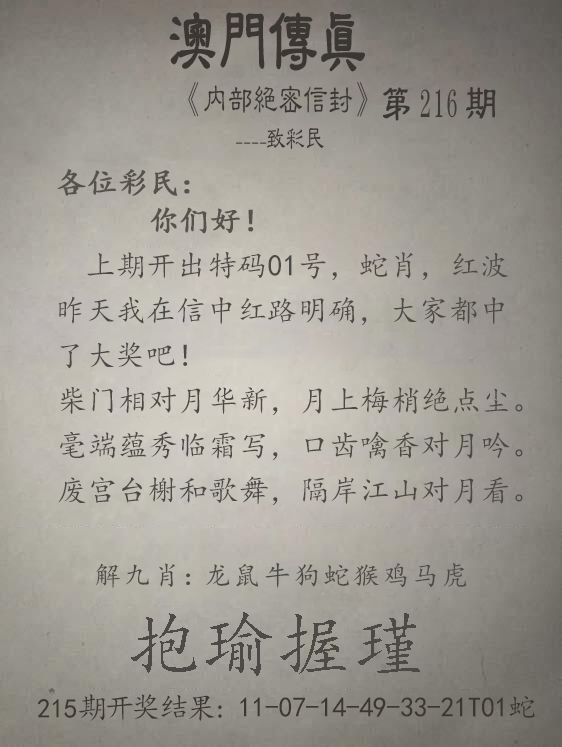 澳門傳眞
《内部絕密信封》第216期
----致彩民
各位彩民：
你们好！
上期开出特码01号，蛇肖，红波
昨天我在信中红路明确，大家都中
了大奖吧！
柴门相对月华新，月上梅梢绝点尘。
毫端蕴秀临霜写，口齿噙香对月吟。
废宫台榭和歌舞，隔岸江山对月看。
解九肖：龙鼠牛狗蛇猴鸡马虎
抱瑜握瑾
215期开奖结果：11-07-14-49-33-21T01蛇